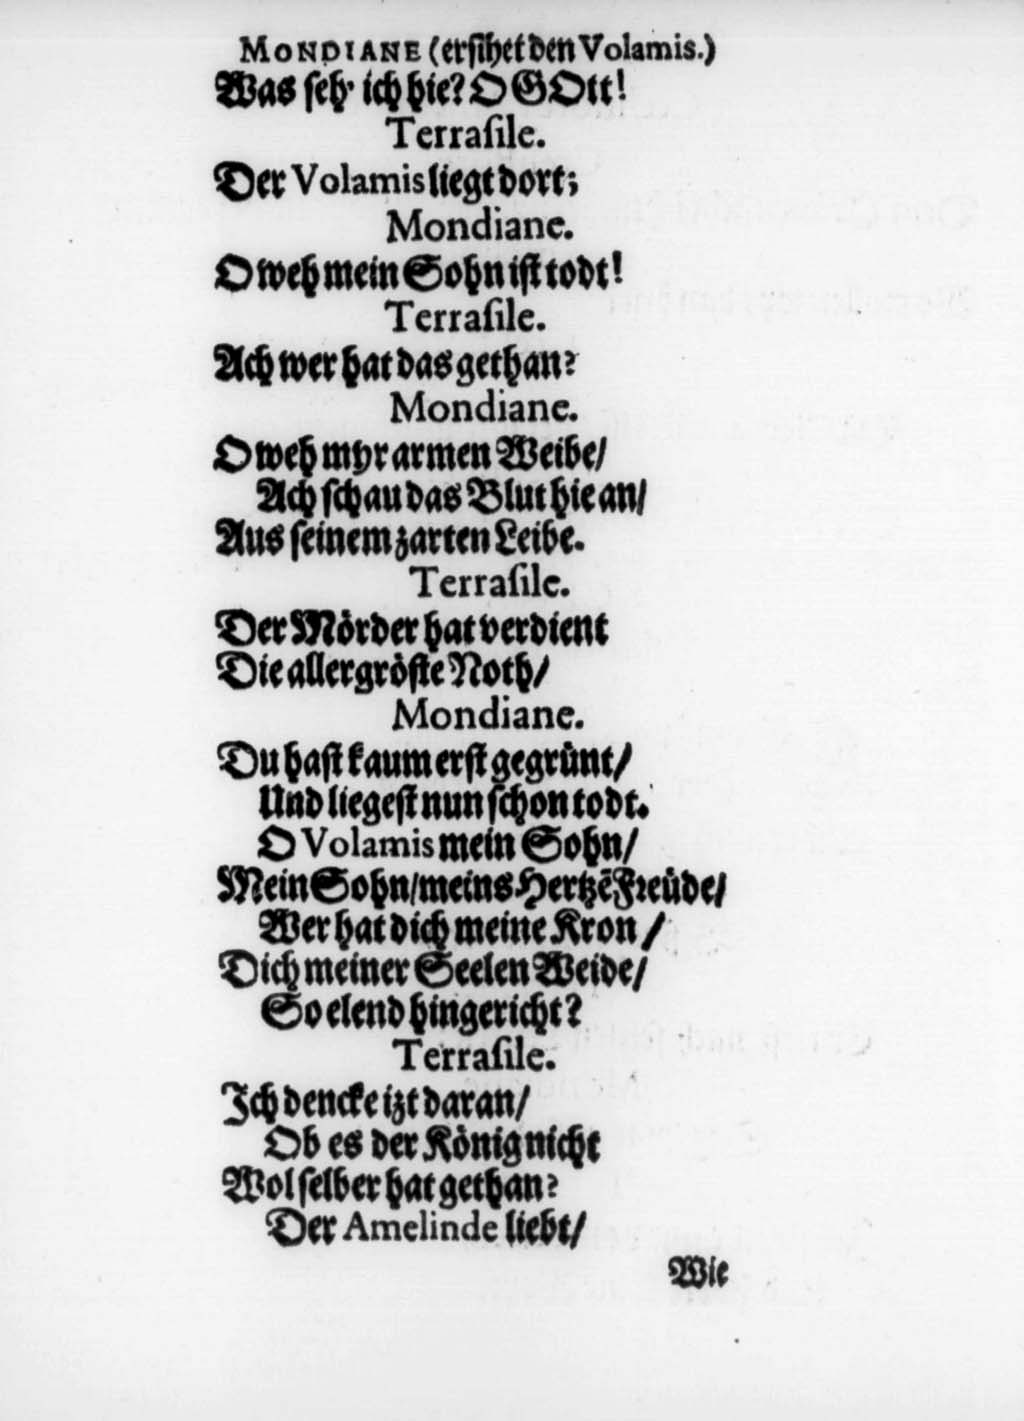 MONDIANE (erſihet den Volamis.)
Was ſeh' ich hie? O GOtt!
Terraſile.
Der Volamis liegt dort;
Mondiane.
O weh mein Sohn iſt todt!
Terraſile.
Ach wer hat das gethan?
Mondiane.
O weh myr armen Weibe/
Ach ſchau das Blut hie an/
Aus ſeinem zarten Leibe.
Terraſile.
Der Mörder hat verdient
Die allergröſte Noth/
Mondiane.
Du haſt kaum erſt gegrünt/
Und liegeſt nun ſchon todt.
O Volamis mein Sohn/
Mein Sohn/meins Hertzẽ Freüde/
Wer hat dich meine Kron/
Dich meiner Seelen Weide/
So elend hingericht?
Terraſile.
Ich dencke izt daran/
Ob es der König nicht
Wol ſelber hat gethan?
Der Amelinde liebt/
Wie